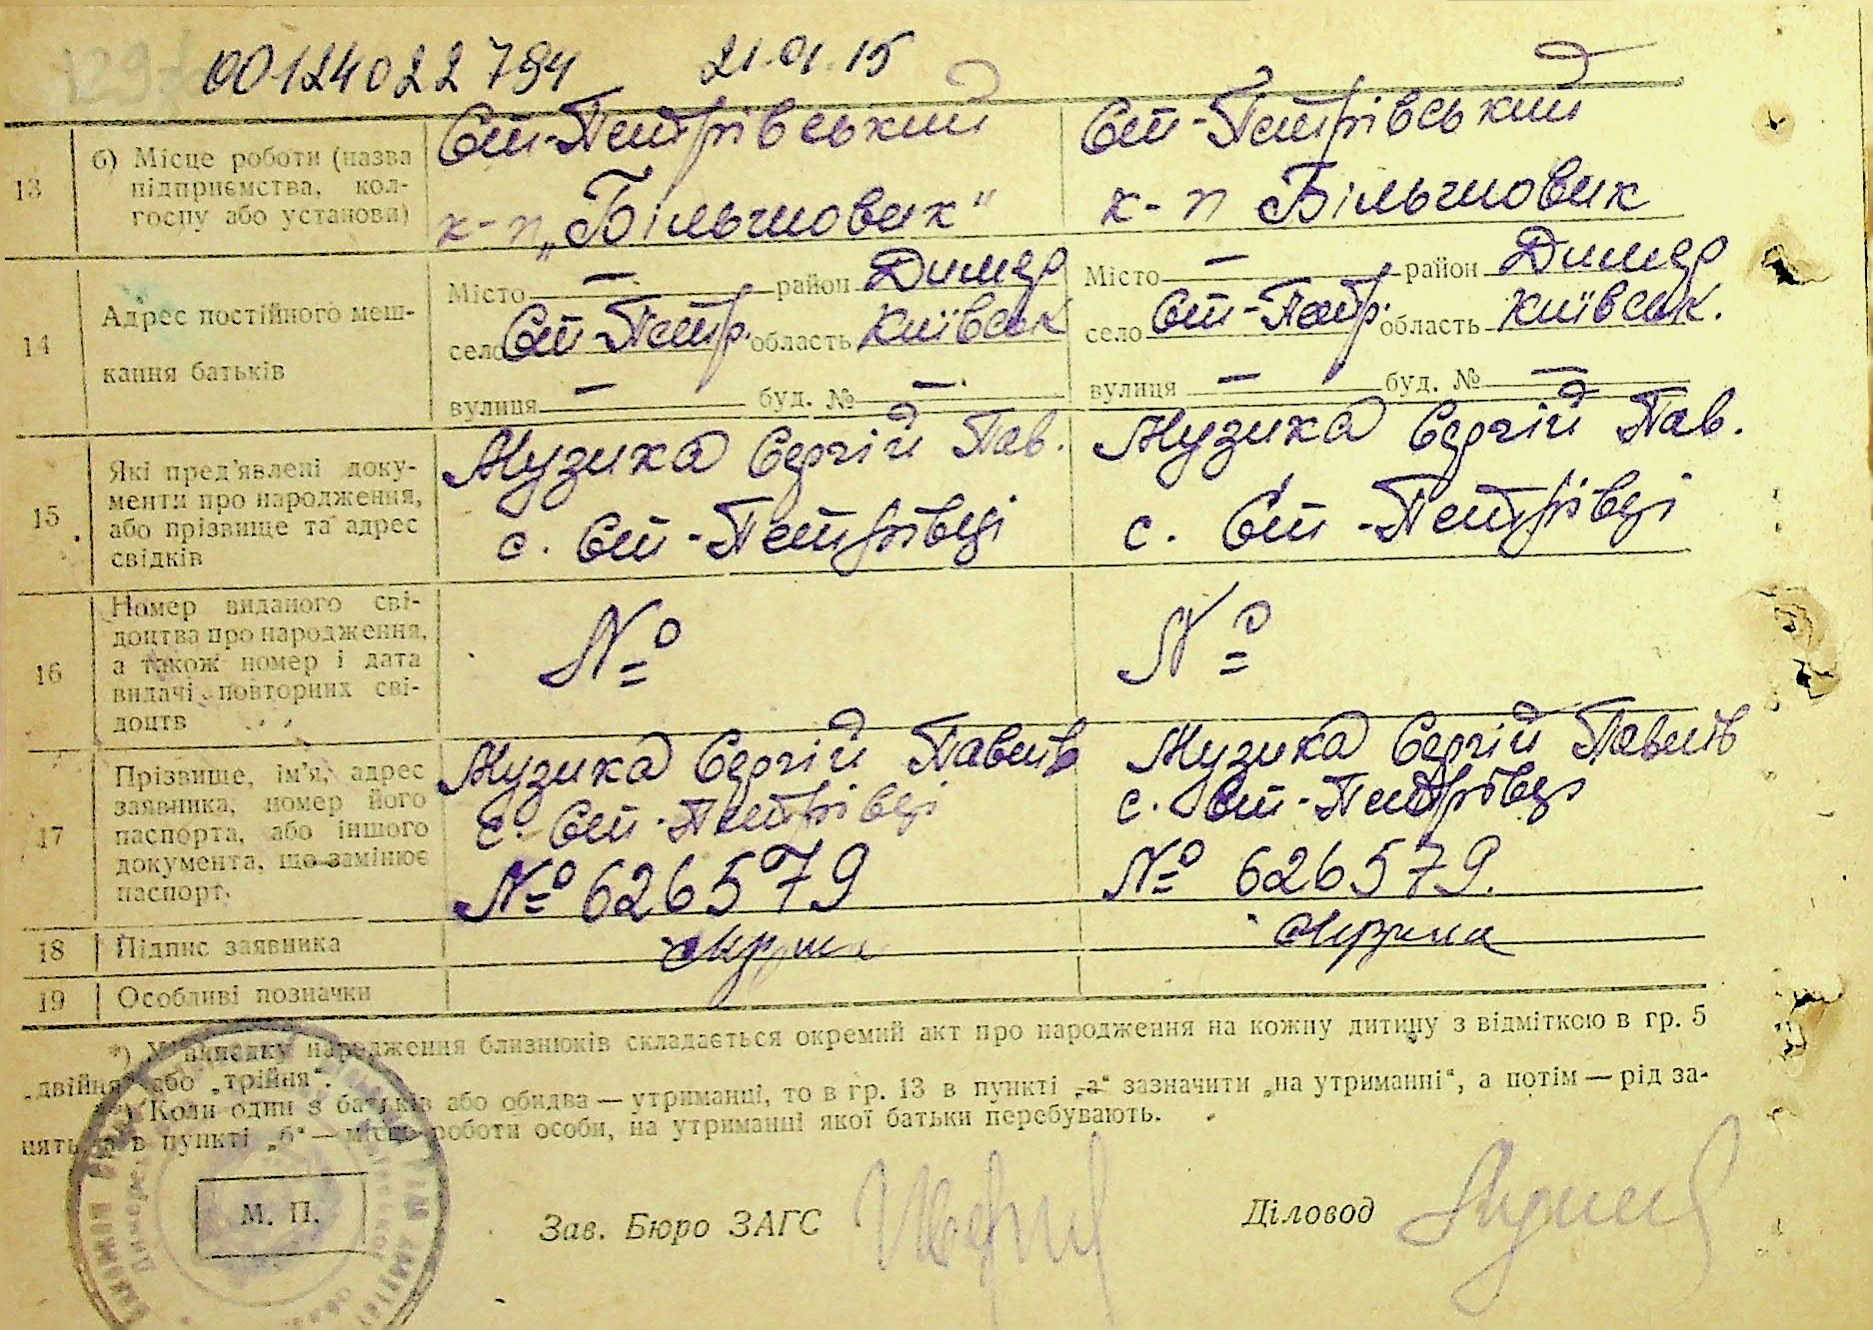 00124022794 21.01.15
13 б) Місце роботи (назва підприємства, кол-
госпу або установи)
Ст-Петрівський
к-п „Більшовик"
Ст-Петрівський
к-п Більшовик
14 Адрес постійного меш-
кання батьків
Місто — район Димер
село Ст-Петр. область Київськ
вулиця — буд. № —
Місто — район Димер
село Ст-Петр. область Київськ.
вулиця — буд. № —
15 Які пред'явлені доку-
менти про народження,
або прізвище та адрес
свідків
Музика Сергій Пав.
с. Ст-Петрівці
Музика Сергій Пав.
с. Ст-Петрівці
16 Номер виданого сві-
доцтва про народження,
а також номер і дата
видачі повторних сві-
доцтв
№
№
17 Прізвище, ім'я, адрес
заявника, номер його
паспорта, або іншого
документа, що замінює
паспорт.
Музика Сергій Павлів
с. Ст-Петрівці
№ 626579
Музика Сергій Павлів
с. Ст-Петрівці
№ 626579.
18 Підпис заявника
19 Особливі позначки
*) У випадку народження близнюків складається окремий акт про народження на кожну дитину з відміткою в гр. 5
„двійня" або „трійня".
Коли один з батьків або обидва — утриманці, то в гр. 13 в пункті „а" зазначити „на утриманні", а потім — рід за-
няття, а в пункті „б" — місце роботи особи, на утриманні якої батьки перебувають.
М. П.
Зав. Бюро ЗАГС
Діловод